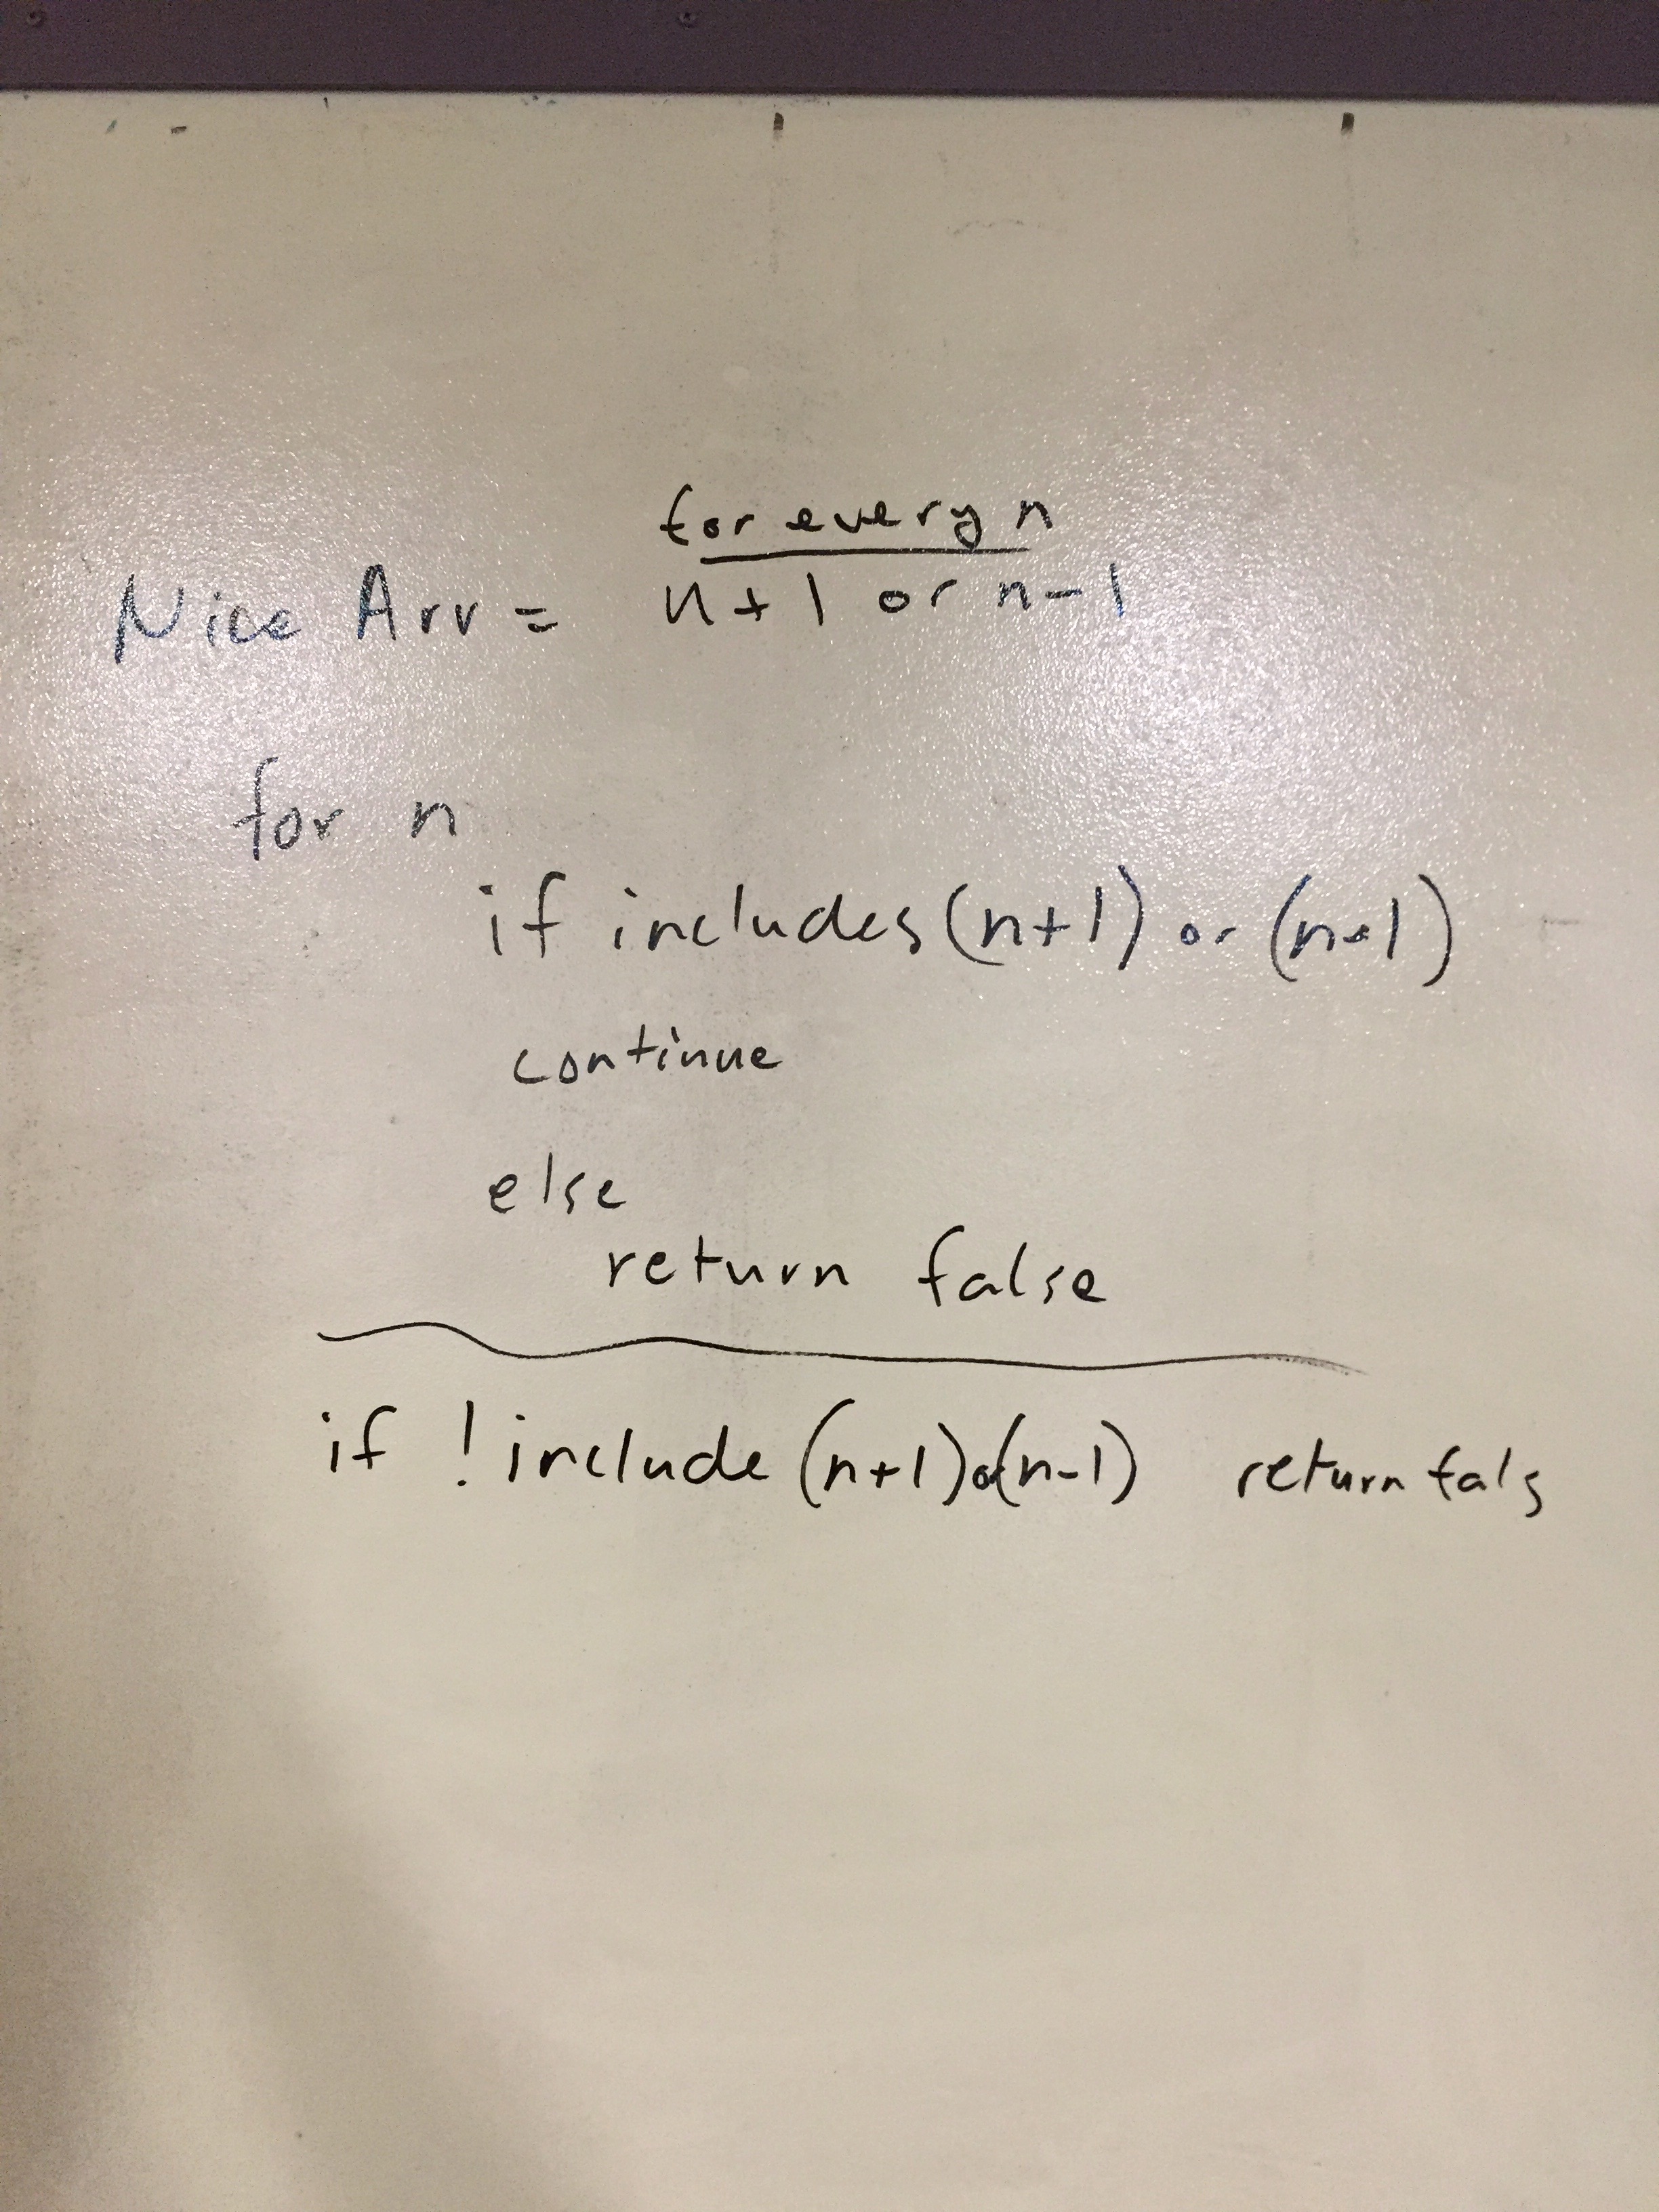 for every n
Nice Arr = n+1 or n-1
for n
if includes (n+1) or (n-1)
continue
else
return false
if ! include (n+1)or(n-1) return fals